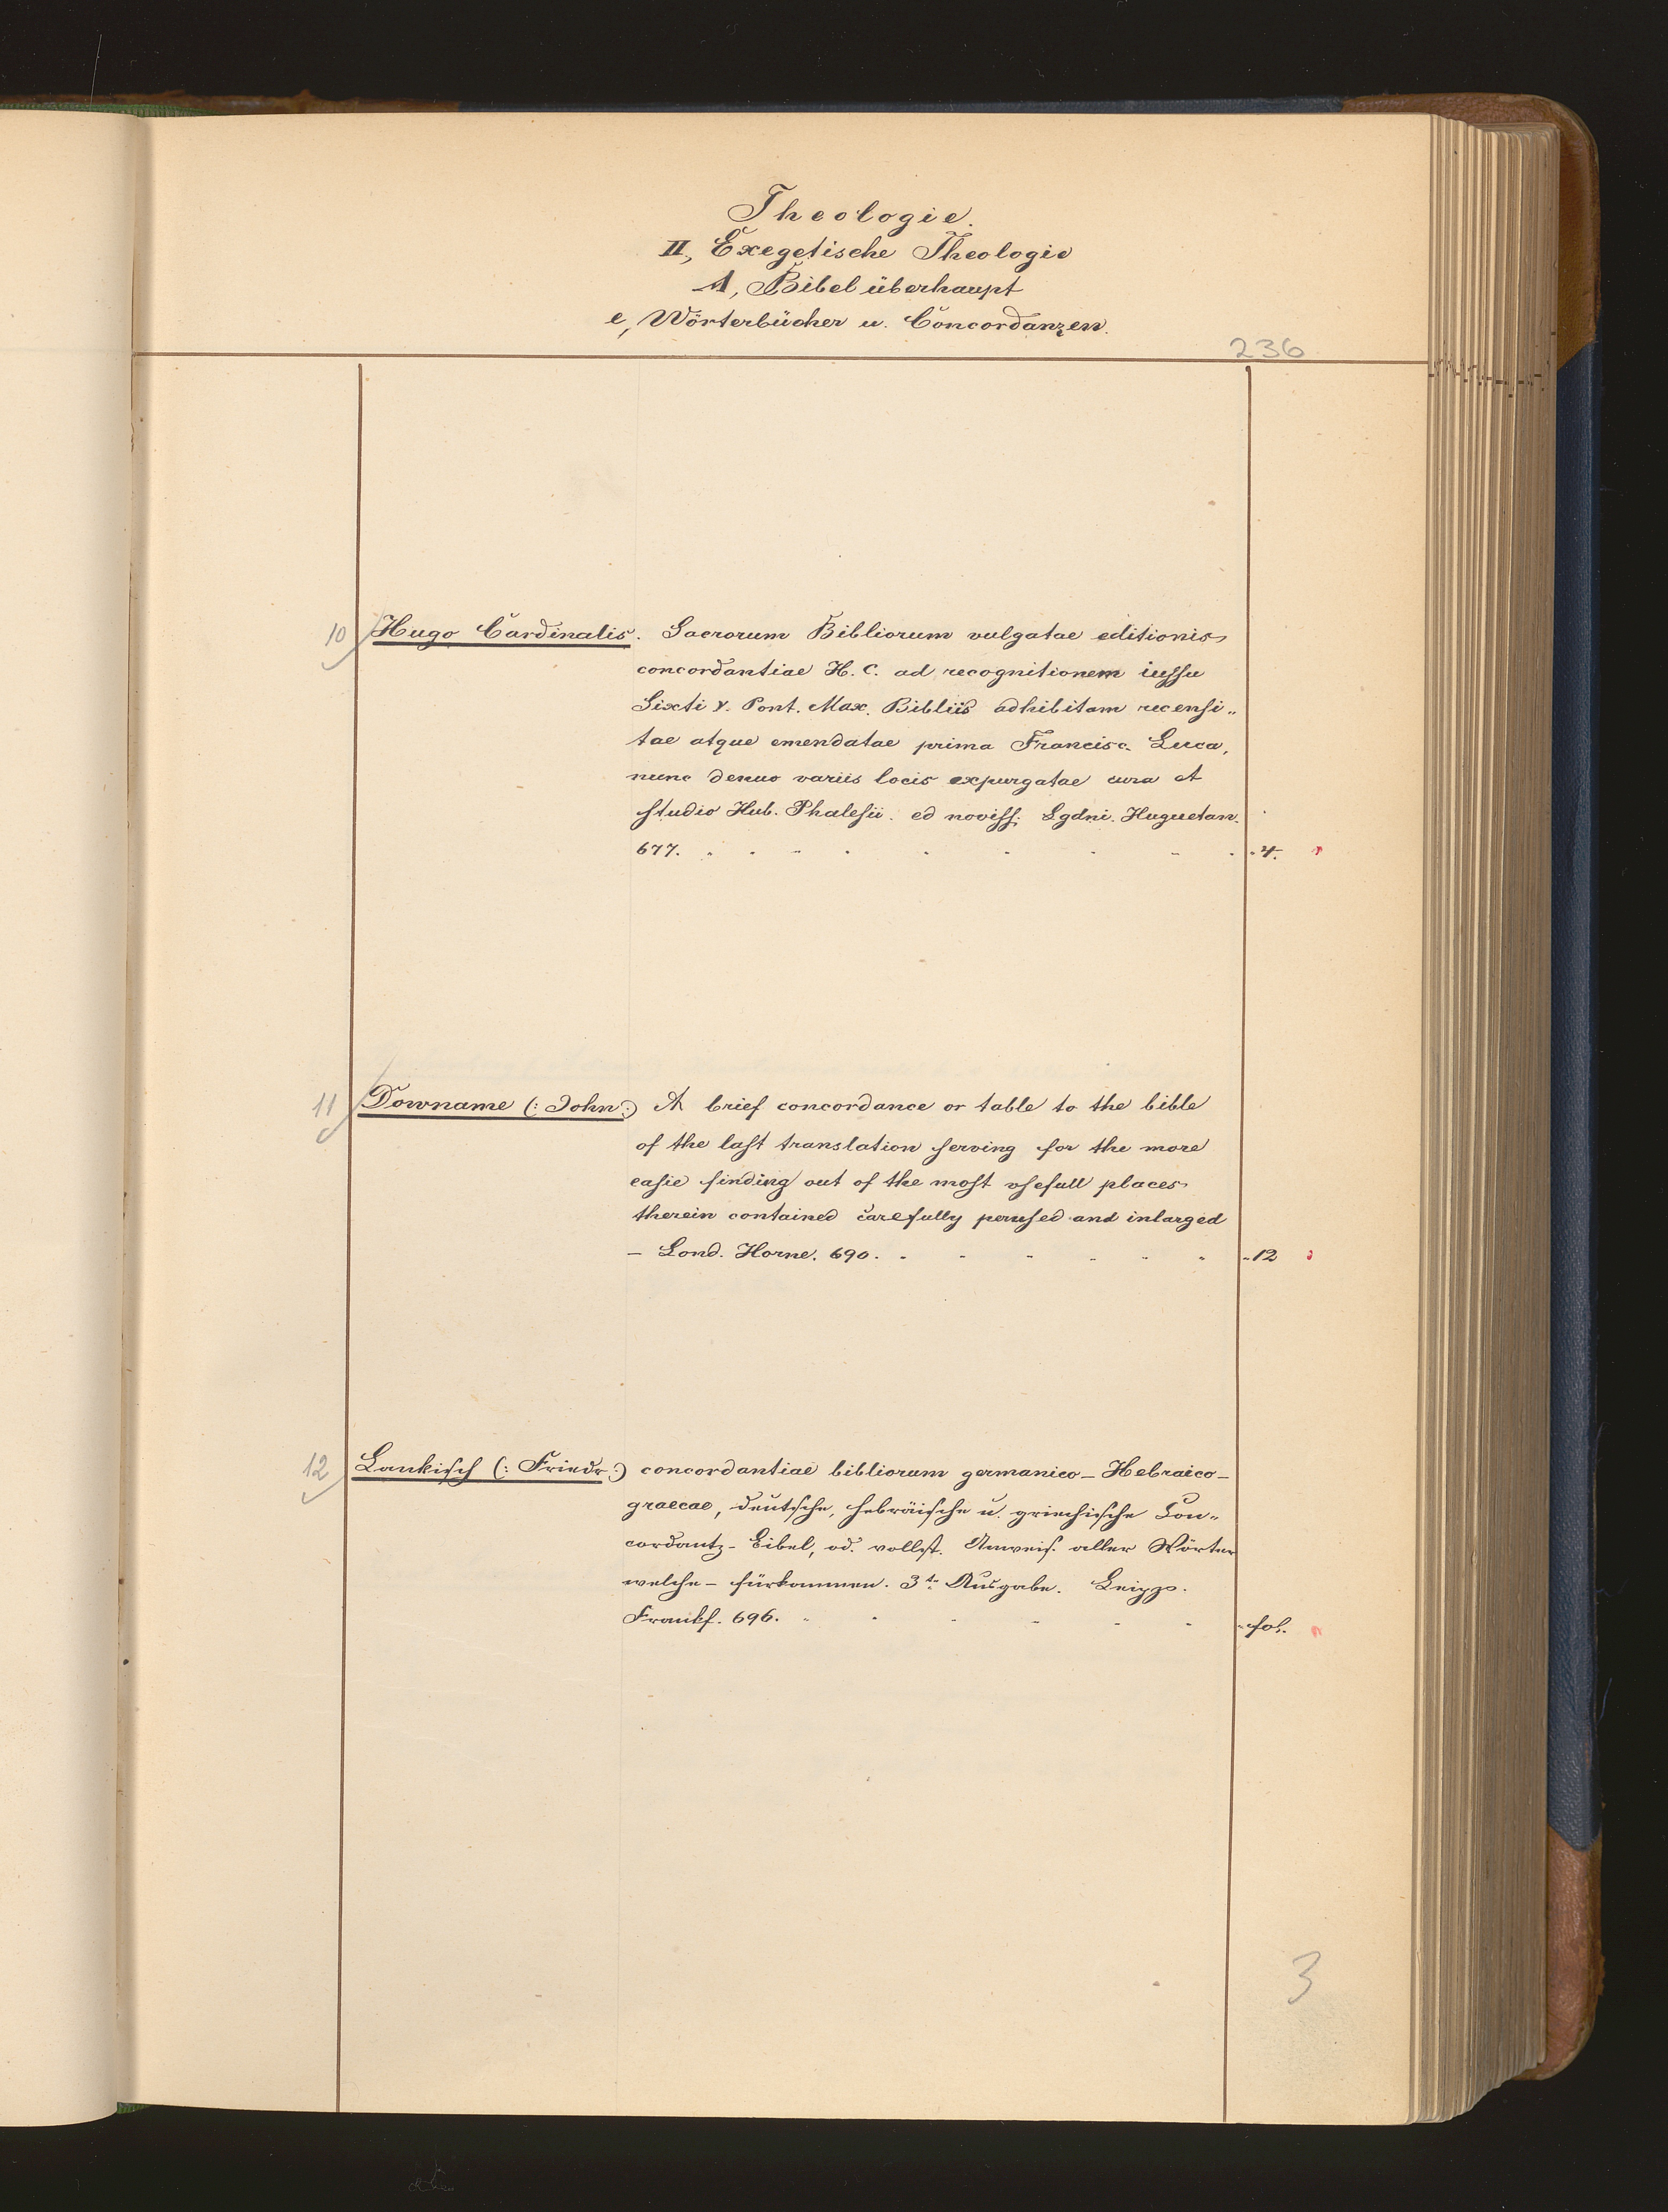 Theologie.
II, Exegetische Theologie
A, Bibel überhaupt
e, Wörterbücher u. Concordanzen.
236
10 Hugo Cardinalis. Sacrorum Bibliorum vulgatae editionis
concordantiae H. C. ad recognitionem iussu
Sixti V. Pont. Max. Bibliis adhibitam recensi-
tae atque emendatae prima Francisc. Luca,
nunc denuo variis locis expurgatae cura et
studio Hub. Phalesii. ed noviss. Lgdni. Huguetan.
677. 4.
11 Downame (: John :) A brief concordance or table to the bible
of the last translation serving for the more
easie finding out of the most vsefull places
therein contained carefully perused and inlarged
— Lond. Horne. 690. 12
12 Lankisch (: Friedr :) concordantiae bibliorum germanico-Hebraico-
graecae, deutsche, hebräische u. griechische Con-
cordantz-Bibel, od. vollst. Anweis. aller Wörter
welche — fürkommen. 3t. Ausgabe. Leipzg.
Frankf. 696. fol.
3